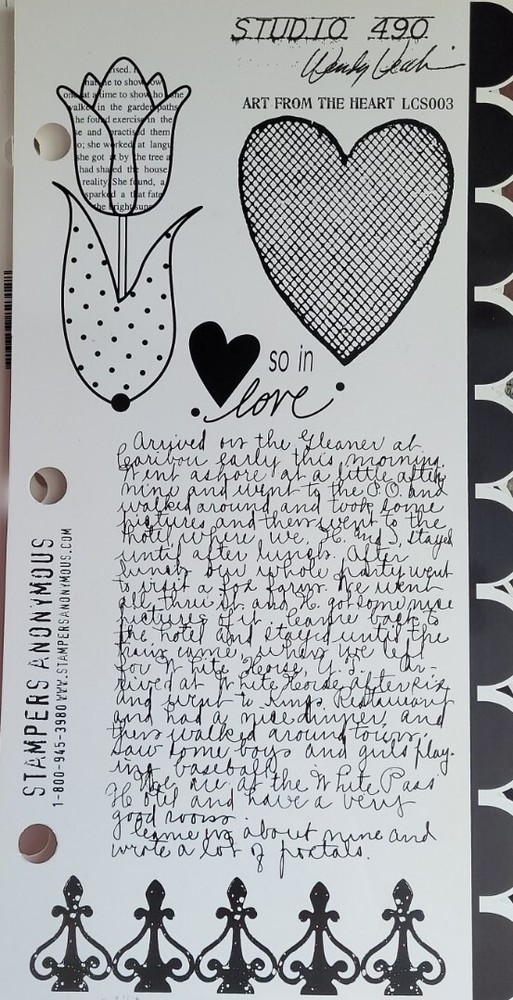 STUDIO 490
Wendy Vecchi
ART FROM THE HEART LCS003
ised. H
that he to show ow
one at a time to show ho she
walke in the garden paths
she found exercise in the
se and practised them
o; she worked at langu
she got at by the tree a
had shared the house
reality. She found, a
sparked a that fate
the bright sun
so in
love
Arrived on the Gleaner at
Caribou early this morning.
Went ashore at a little after
nine and went to the P.O. and
walked around and took some
pictures and then went to the
hotel where we, H. and I, stayed
until after lunch. After
lunch our whole party went
to visit a fox farm. We went
all thru it and H. got some nice
pictures of it. Came back to
the hotel and stayed until the
train came, when we left
for White Horse, Y.T. Ar-
rived at White Horse after six
and went to Kings Restaurant
and had a nice dinner, and
then walked around town.
Saw some boys and girls play-
ing baseball.
We are at the White Pass
Hotel and have a very
good room.
Came in about nine and
wrote a lot of postals.
STAMPERS ANONYMOUS
1-800-945-3980 WWW.STAMPERSANONYMOUS.COM